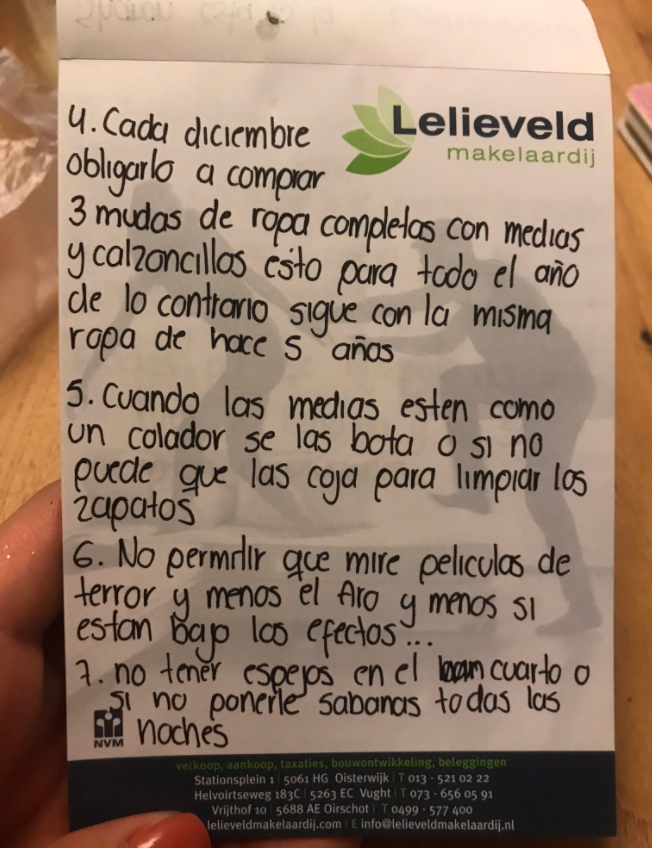 Lelieveld
makelaardij
4. Cada diciembre
obligarlo a comprar
3 mudas de ropa completas con medias
y calzoncillos esto para todo el año
de lo contrario sigue con la misma
ropa de hace 5 años
5. Cuando las medias esten como
un colador se las bota o si no
puede que las coja para limpiar los
zapatos
6. No permitir que mire peliculas de
terror y menos el Aro y menos si
estan bajo los efectos...
7. no tener espejos en el cuarto o
si no ponerle sabanas todas las
noches
NVM
verkoop, aankoop, taxaties, bouwontwikkeling, beleggingen
Stationsplein 1 | 5061 HG Oisterwijk | T 013 - 521 02 22
Helvoirtseweg 183C | 5263 EC Vught | T 073 - 656 05 91
Vrijthof 10 | 5688 AE Oirschot | T 0499 - 577 400
lelieveldmakelaardij.com | E info@lelieveldmakelaardij.nl